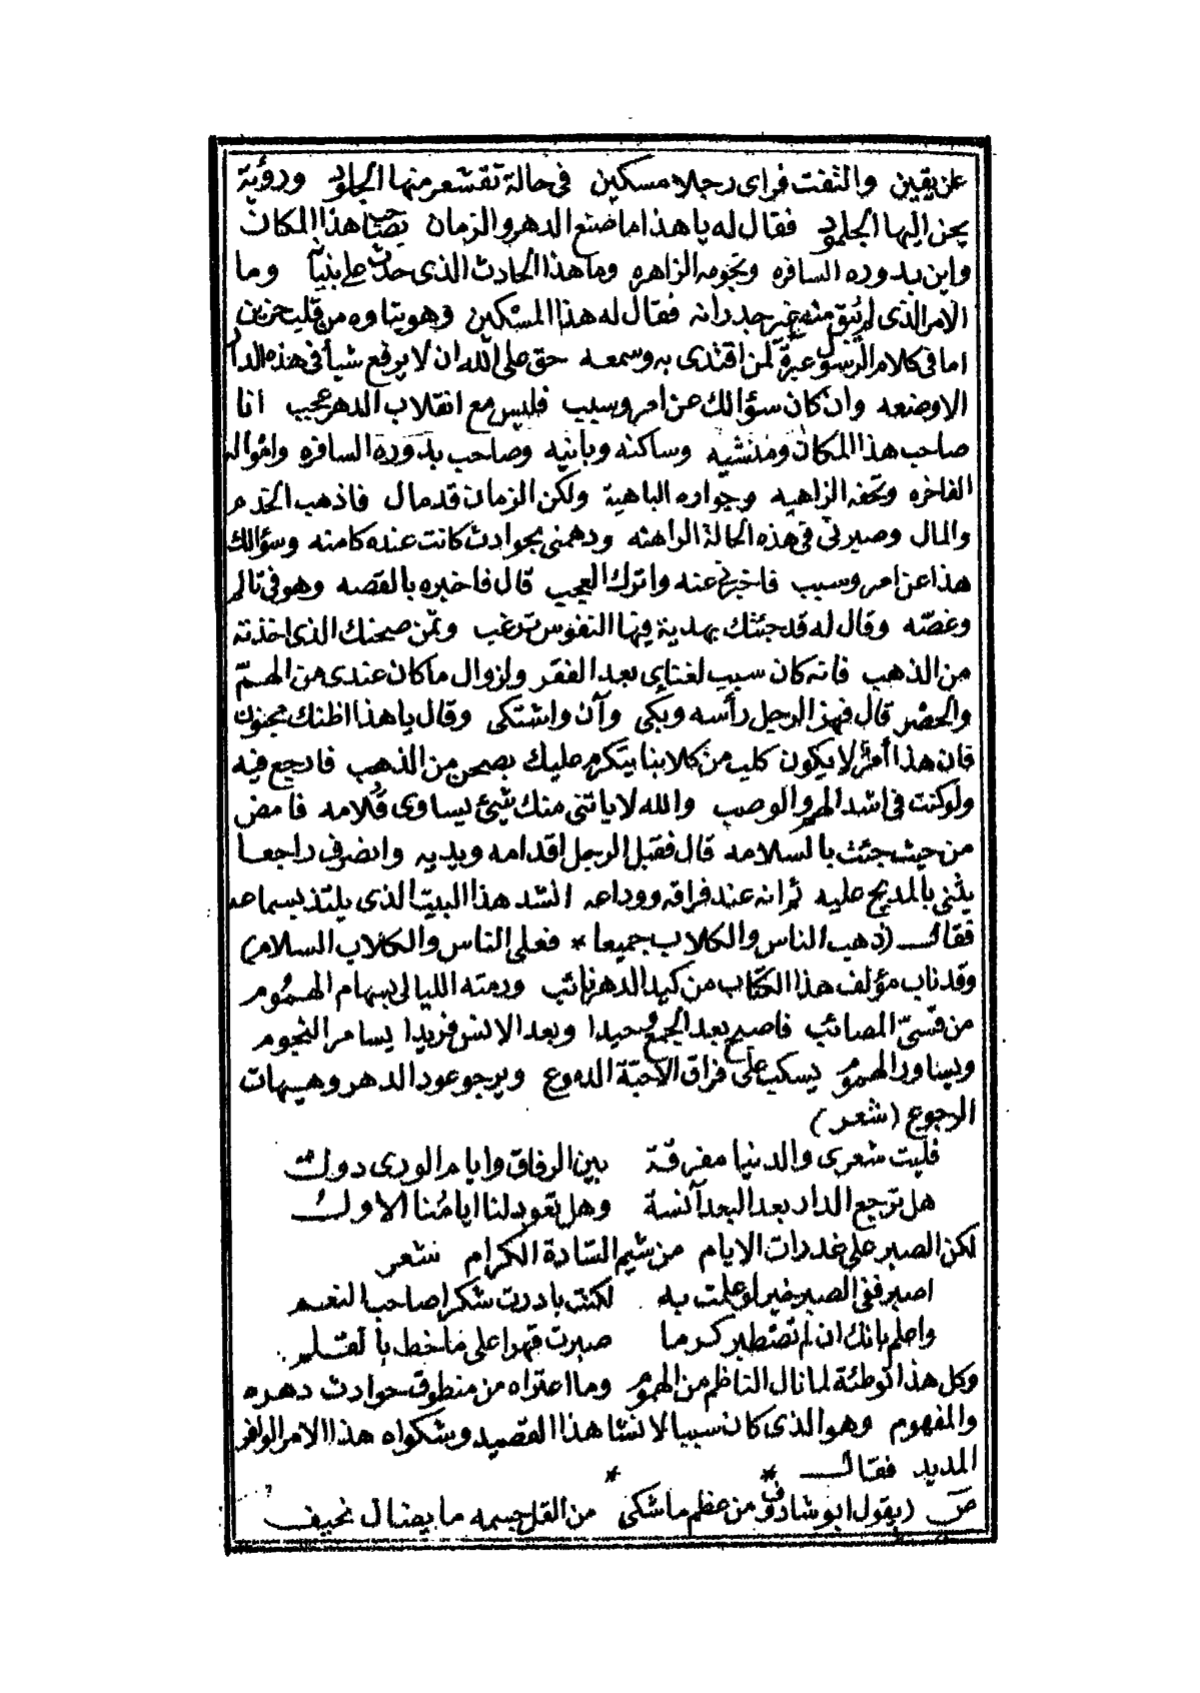 عن يقين والتفت فراى رجلا مسكين فى حالة تقشعر منها الجلود ورؤية
يحن اليها الجلمود فقال له ياهذا ما صنع الدهر والزمان بصاحب هذا المكان
واين بدوره السافره ونجومه الزاهره وما هذا الحادث الذى حدث على بنيانه وما
الامر الذى لم يبق منه غير جدرانه فقال له هذا المسكين وهو يتاوه من قلب حزين
اما فى كلام الرسول عبرة لمن اقتدى به وسمعه حق على الله ان لا يرفع شيأ فى هذه الدار
الا وضعه وان كان سؤالك عن امر وسبب فليس مع انقلاب الدهر عجب انا
صاحب هذا المكان ومنشيه وساكنه وبانيه وصاحب بدوره السافره وامواله
الفاخره وتحفه الزاهيه وجواره الباهية ولكن الزمان قد مال فاذهب الخدم
والمال وصيرنى فى هذه الحالة الراهنه ودهمنى بحوادث كانت عنده كامنه وسؤالك
هذا عن امر وسبب فاخبرنى عنه واترك العجب قال فاخبره بالقصه وهو فى تالم
وغصّه وقال له قد جئتك بهدية فيها النفوس ترغب وثمن صحنك الذى اخذته
من الذهب فانه كان سبب لغناى بعد الفقر ولزوال ما كان عندى من الهمّ
والحصر قال فهز الرجل رأسه وبكى وآن واشتكى وقال ياهذا اظنك مجنون
فان هذا أمرٌ لا يكون كلب من كلابنا يتكرم عليك بصحن من الذهب فارجع فيه
ولو كنت فى اشد الهم والوصب والله لا ياتنى منك شيئ يساوى قلامه فامض
من حيث جئت بالسلامه قال فقبل الرجل اقدامه ويديه وانصرف راجعا
يثنى بالمديح عليه ثم انه عند فراقه ووداعه انشد هذا البيت الذى يلتذ بسماعه
فقال (ذهب الناس والكلاب جميعا * فعلى الناس والكلاب السلام)
وقد ناب مؤلف هذا الكتاب من كيد الدهر نائب ورمته الليالى بسهام الهموم
من قسىّ المصائب فاصبح بعد الجمع وحيدا وبعد الانس فريدا يسامر النجوم
ويساور الهموم يسكب على فراق الاحبّة الدموع ويرجو عود الدهر وهيهات
الرجوع (شعر)
فليت شعرى والدنيا مفرقة بين الرفاق وايام الورى دول
هل ترجع الدار بعد البعد آنسة وهل تعود لنا ايامُنا الاول
لكن الصبر على غدرات الايام من شيم السّادة الكرام شعر
اصبر ففى الصبر خير لو علمت به لكنت بادرت شكرا صاحب النعم
واعلم بانك ان لم تصطبر كرما صبرت قهرا على ما خط بالقلم
وكل هذا توطئة لما نال الناظم من الهموم وما اعتراه من منطوق حوادث دهره
والمفهوم وهو الذى كان سببا لانشا هذا القصيد وشكواه هذا الامر الوافر
المديد فقال
ص (يقول ابو شادوف من عظم ما شكى * من القل جسمه ما يضال نحيف